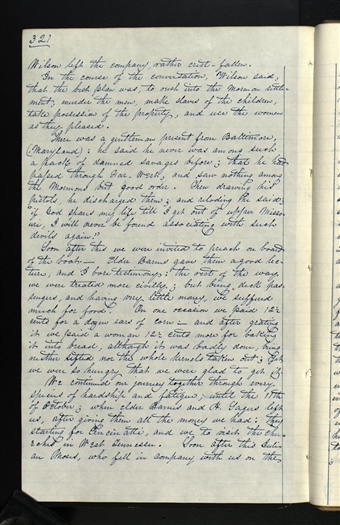 321
Wilson left the company, rather crest-fallen.
In the course of the conversation, Wilson said,
that the best plan was, to rush into the Mormon settle-
ment, murder the men, make slaves of the children,
take possession of the property, and use the women
as they pleased.
There was a gentleman present from Baltimore,
Maryland; he said he never was among such
a pack of damned savages before; that he had
passed through Far West, and saw nothing among
the Mormons but good order. Then drawing his
pistols, he discharged them; and reloading, he said;
"if God spares my life till I get out of upper Misso-
uri, I will never be found associating with such
devils again."
Soon after this we were invited to preach on board
of the boat; — Elder Barnes gave them a good lec-
ture, and I bore testimony: the rest of the way
we were treated more civilly; but being deck pas-
sengers, and having very little money, we suffered
much for food. On one occasion we paid 12½
cents for a dozen ears of corn — and after grating
it we paid a woman 12½ cents more for baking
it into bread, although it was badly done, being
neither sifted nor the whole kernels taken out; yet
we were so hungry that we were glad to get it.
We continued our journey together through every
species of hardship and fatigue, until the 11th
of October; when elder Barnes and H. Sagers left
us, after giving them all the money we had; they
starting for Cincinatti, and we to visit the chu-
rches in West Tennessee. Soon after this Juli-
an Moses, who fell in company with us on the